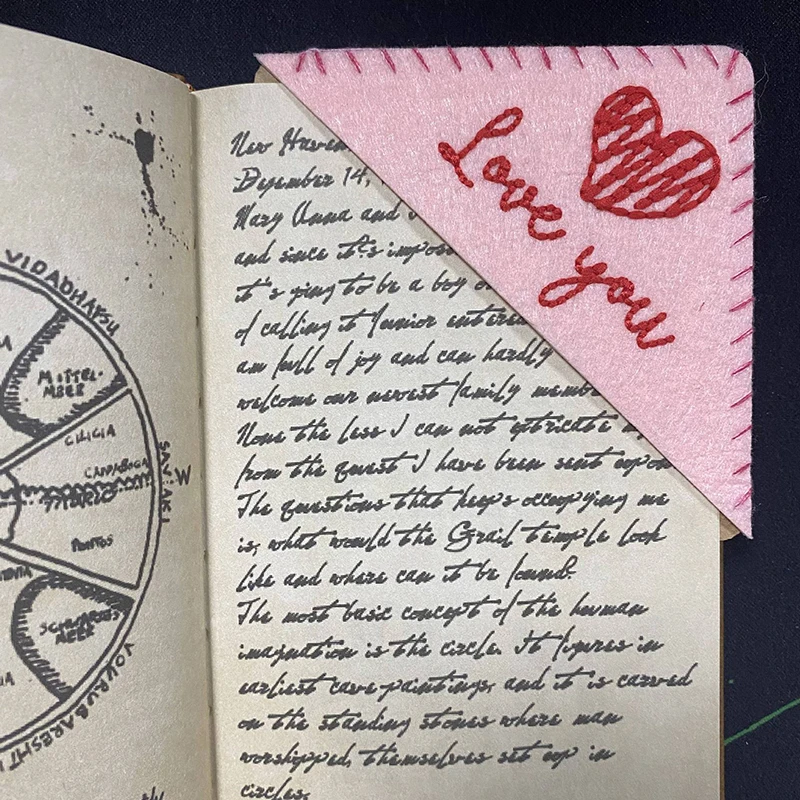 VIDADHAFSU
MITTEL-
MEER
CILICIA
SAVAHI
W
PONTOS
SCHWARZES
MEER
VOURUBARESHTI
New Haven
Dezember 14,
Mary Anna and
and since it's
it's going to be a boy
of calling it Junior
am full of joy and can hardly
welcome our newest family
None the less I can not extricate
from the quest I have been sent upon
The questions that keeps occupying me
is, what would the Grail temple look
like and where can it be found?
The most basic concept of the human
imagination is the circle. It figures in
earliest cave-paintings, and it is carved
on the standing stones where man
worshipped, themselves set up in
circles.
Love you